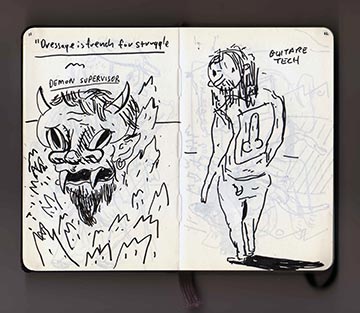 "Dressage is french for struggle
DEMON SUPERVISOR
GUITARE
TECH